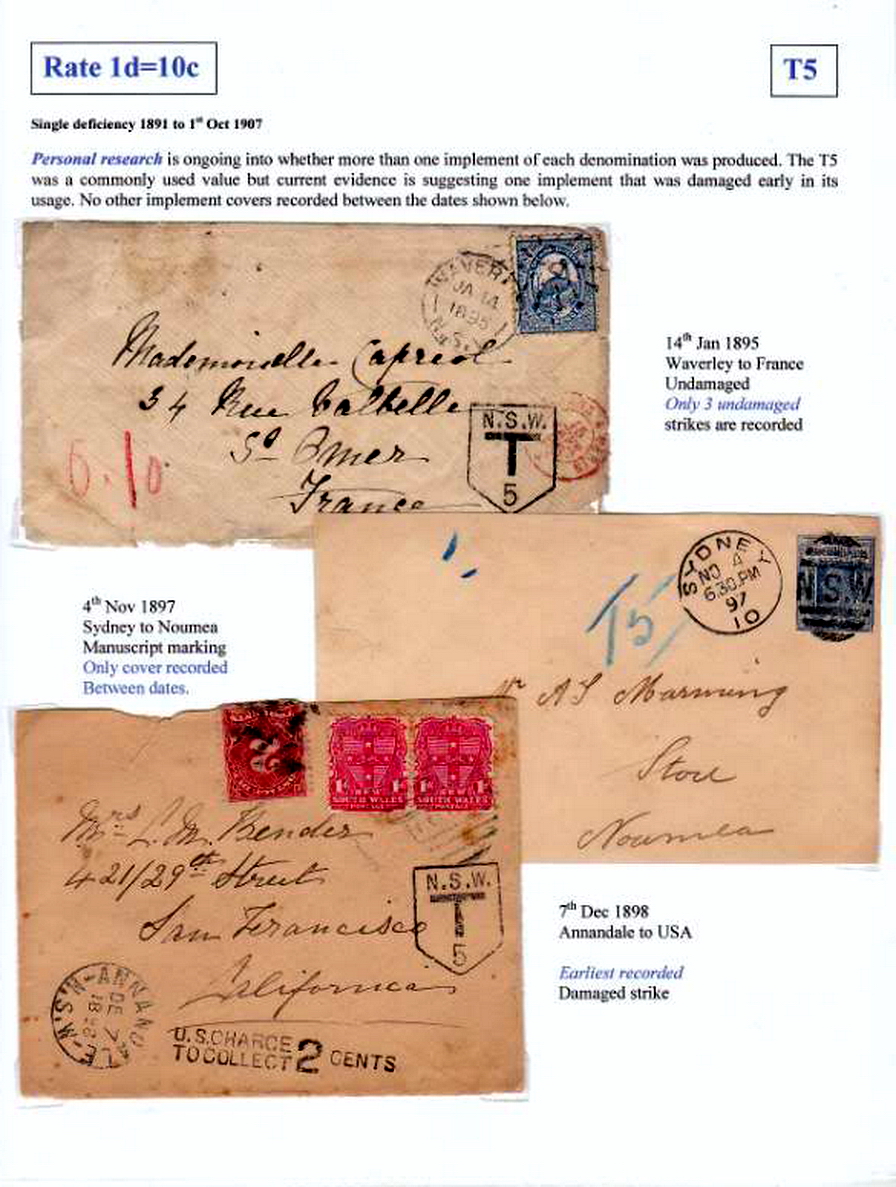 Rate 1d=10c
T5
Single deficiency 1891 to 1st Oct 1907
Personal research is ongoing into whether more than one implement of each denomination was produced. The T5
was a commonly used value but current evidence is suggesting one implement that was damaged early in its
usage. No other implement covers recorded between the dates shown below.
WAVER
JA 14
1895
N.S.
Mademoiselle Capreol
34 Rue Valbelle
St Omer
France
N.S.W.
T
5
6.10
14th Jan 1895
Waverley to France
Undamaged
Only 3 undamaged
strikes are recorded
SYDNEY
NO 4
6.30.PM
97
10
N.S.W.
T5
4th Nov 1897
Sydney to Noumea
Manuscript marking
Only cover recorded
Between dates.
Mr A S Manning
Store
Noumea
1d 1d
NEW NEW
SOUTH WALES SOUTH WALES
POSTAGE POSTAGE
Mrs L. M. Bender
421/29th Street
San Francisco
California
N.S.W.
T
5
ANNAND
DE 7
1898
LE-N.S.W
U.S.CHARGE
TO COLLECT 2 CENTS
7th Dec 1898
Annandale to USA
Earliest recorded
Damaged strike